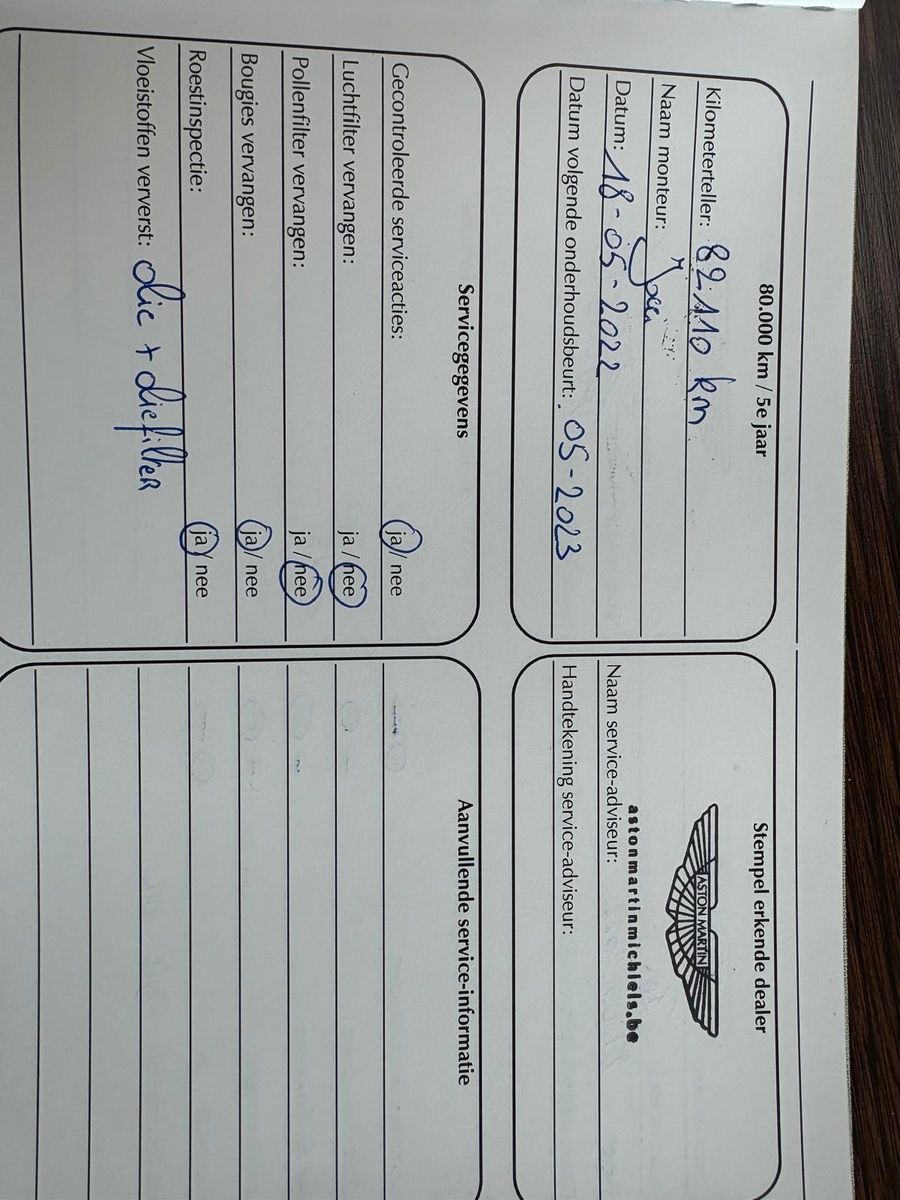 80.000 km / 5e jaar
Kilometerteller: 82.110 km
Naam monteur:
Datum: 18-05-2022
Datum volgende onderhoudsbeurt: 05-2023
Stempel erkende dealer
ASTON MARTIN
astonmartinmichiels.be
Naam service-adviseur:
Handtekening service-adviseur:
Servicegegevens
Gecontroleerde serviceacties: ja / nee
Luchtfilter vervangen: ja / nee
Pollenfilter vervangen: ja / nee
Bougies vervangen: ja / nee
Roestinspectie: ja / nee
Vloeistoffen ververst: olie + oliefilter
Aanvullende service-informatie